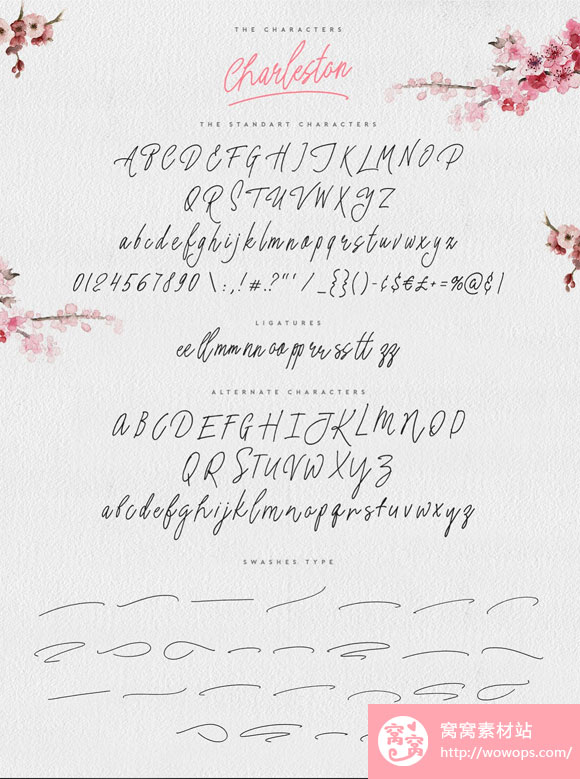 THE CHARACTERS
Charleston
THE STANDART CHARACTERS
ABCDEFGHIJKLMNOP
QRSTUVWXYZ
abcdefghijklmnopqrstuvwxyz
0124567890 \:,!#.?"'/_{}()-¢$€£+=%@&|
LIGATURES
ee ll mm nn oo pp rr ss tt zz
ALTERNATE CHARACTERS
ABCDEFGHIJKLMNOP
QRSTUVWXYZ
abcdefghijklmnopqrstuvwxyz
SWASHES TYPE
窝窝
窝窝素材站
http://wowops.com/